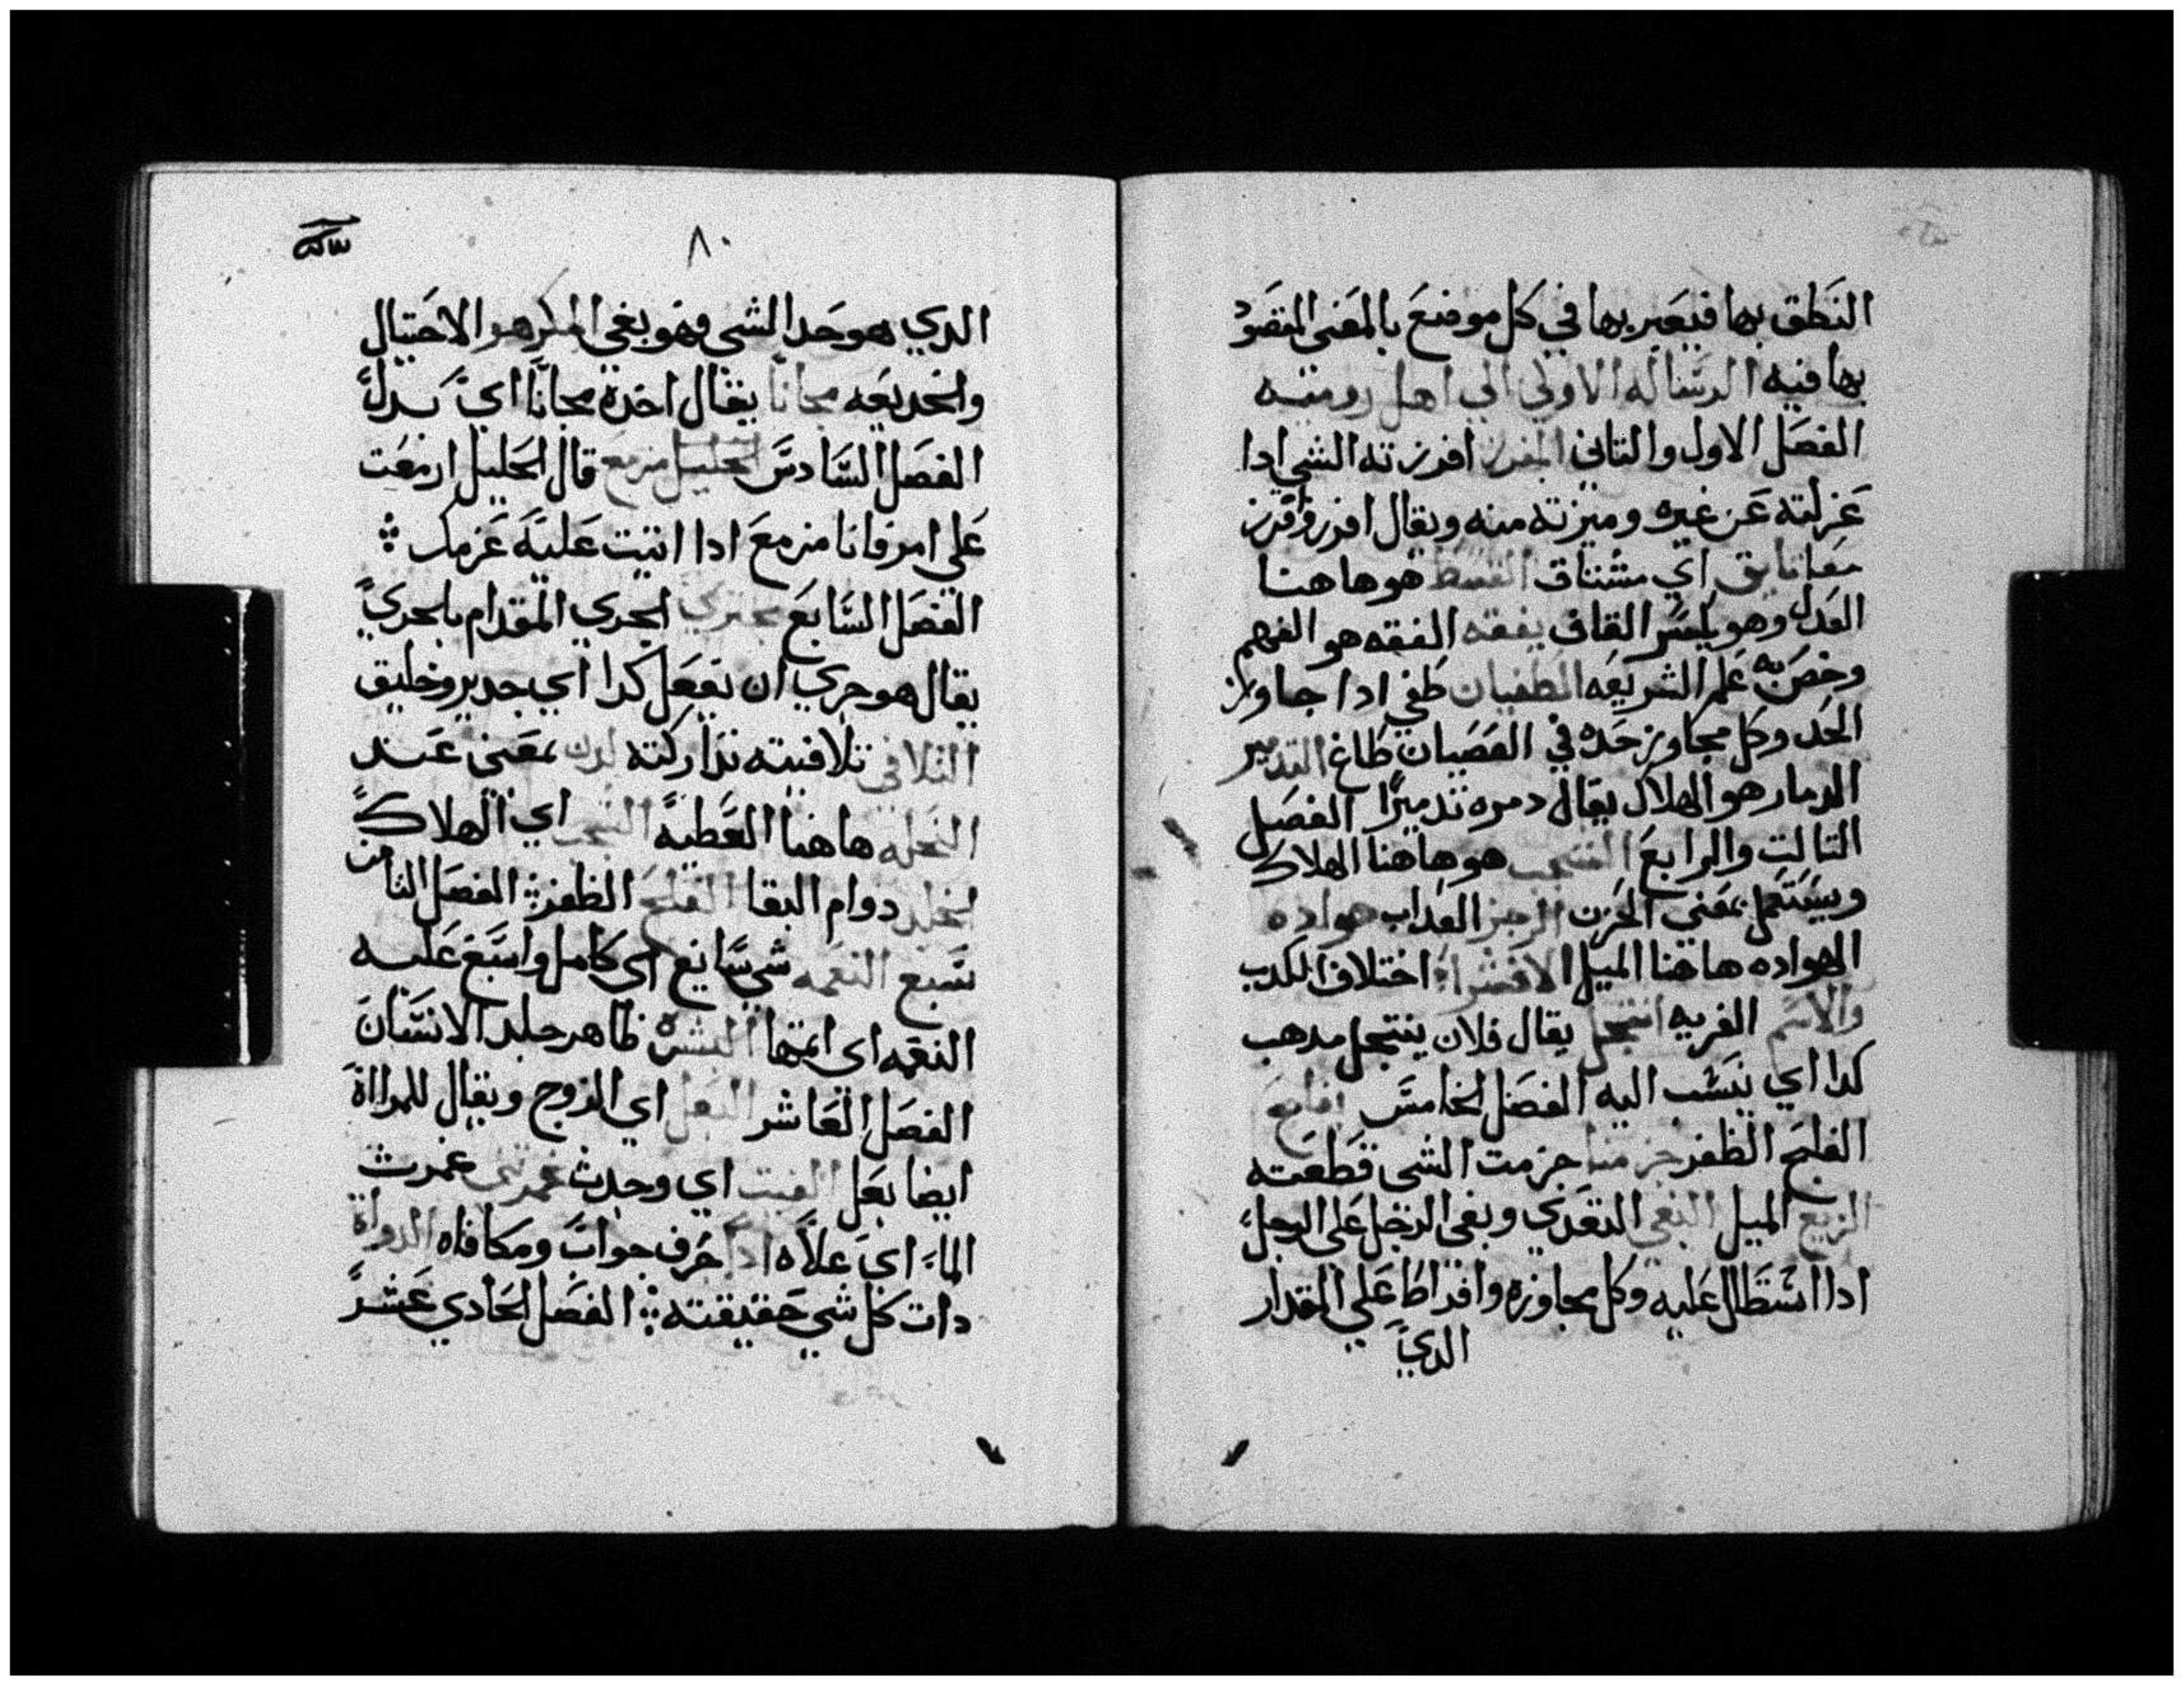 النطق بها فيعبر بها في كل موضع بالمعنى المقصود
بها فيه الرساله الاولي الي اهل روميه
الفصل الاول والتاني المفرز افرزته الشي ادا
عزلته عن غيره وميزته منه ويقال افرز وافرز
معا تايق اي مشتاق القسط هو هاهنا
العدل وهو بكسر القاف يفقه الفقه هو الفهم
وخص به علم الشريعه الطغيان طغي ادا جاوز
الحد وكل مجاوز حده في العصيان طاغ التدمير
الدمار هو الهلاك يقال دمره تدميرا الفصل
التالت والرابع الشجب هو هاهنا الهلاك
ويستعمل بمعني الحزن الرجز العداب هواده
الهواده هاهنا الميل الافترا اختلاف الكدب
والاسم الفريه انتحل يقال فلان ينتحل مدهب
كدا اي ينسب اليه الفصل الخامس
الفلح الظفر جزمنا جزمت الشي قطعته
الزيغ الميل البغي التعدي وبغي الرجل علي الرجل
ادا استطال عليه وكل مجاوزه وافراط علي المقدار
الدي
٨٠
الدي هو حد الشي فهو بغي المكر هو الاحتيال
والخديعه مجانا يقال اخده مجانا اي بدل
الفصل السادس الخليل مزمع قال الخليل ازمعت
علي امر فانا مزمع ادا اتيت عليه عزمك
الفصل السابع تجتري الجري المقدام بالحري
يقال هو حري ان يفعل كدا اي جدير وخليق
التلافي تلافيته تداركته لدن بمعني عند
النحله هاهنا العطيه الشجب اي الهلاك
الخلد دوام البقا الفلح الظفر الفصل التامن
تسبغ النعمه شي سابغ اي كامل واسبغ عليه
النعمه اي اتمها البشره ظاهر جلد الانسان
الفصل العاشر البعل اي الزوج ويقال للمراة
ايضا بعل الفيت اي وجدت غمرتني غمرت
الماء اي علاه ادا حرف جواب ومكافاه الدواة
دات كل شي حقيقته الفصل الحادي عشر